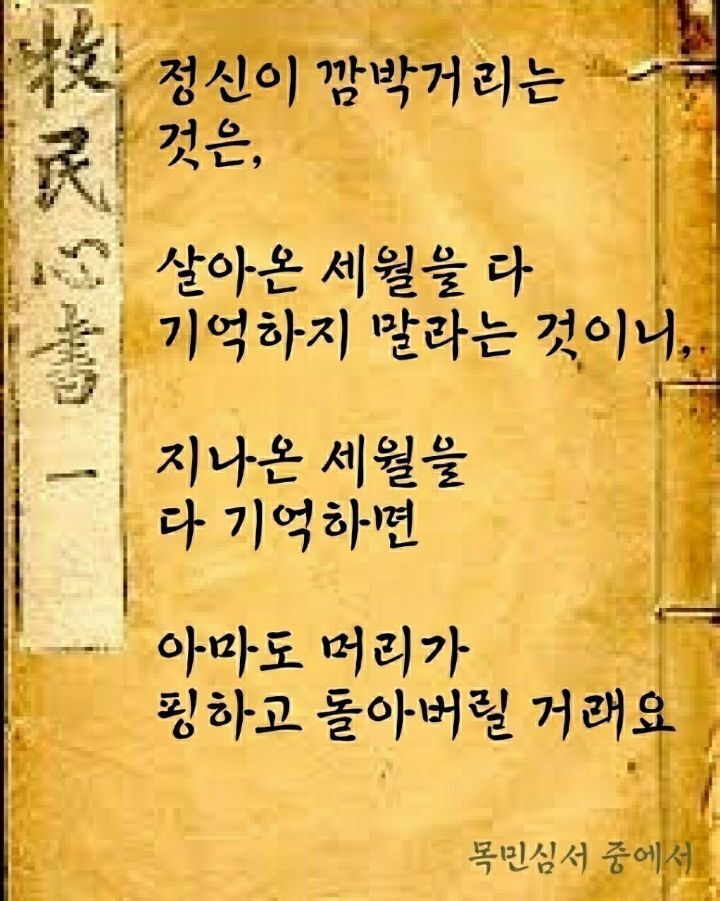 牧民心書 一
정신이 깜박거리는
것은,
살아온 세월을 다
기억하지 말라는 것이니,
지나온 세월을
다 기억하면
아마도 머리가
핑하고 돌아버릴 거래요
목민심서 중에서